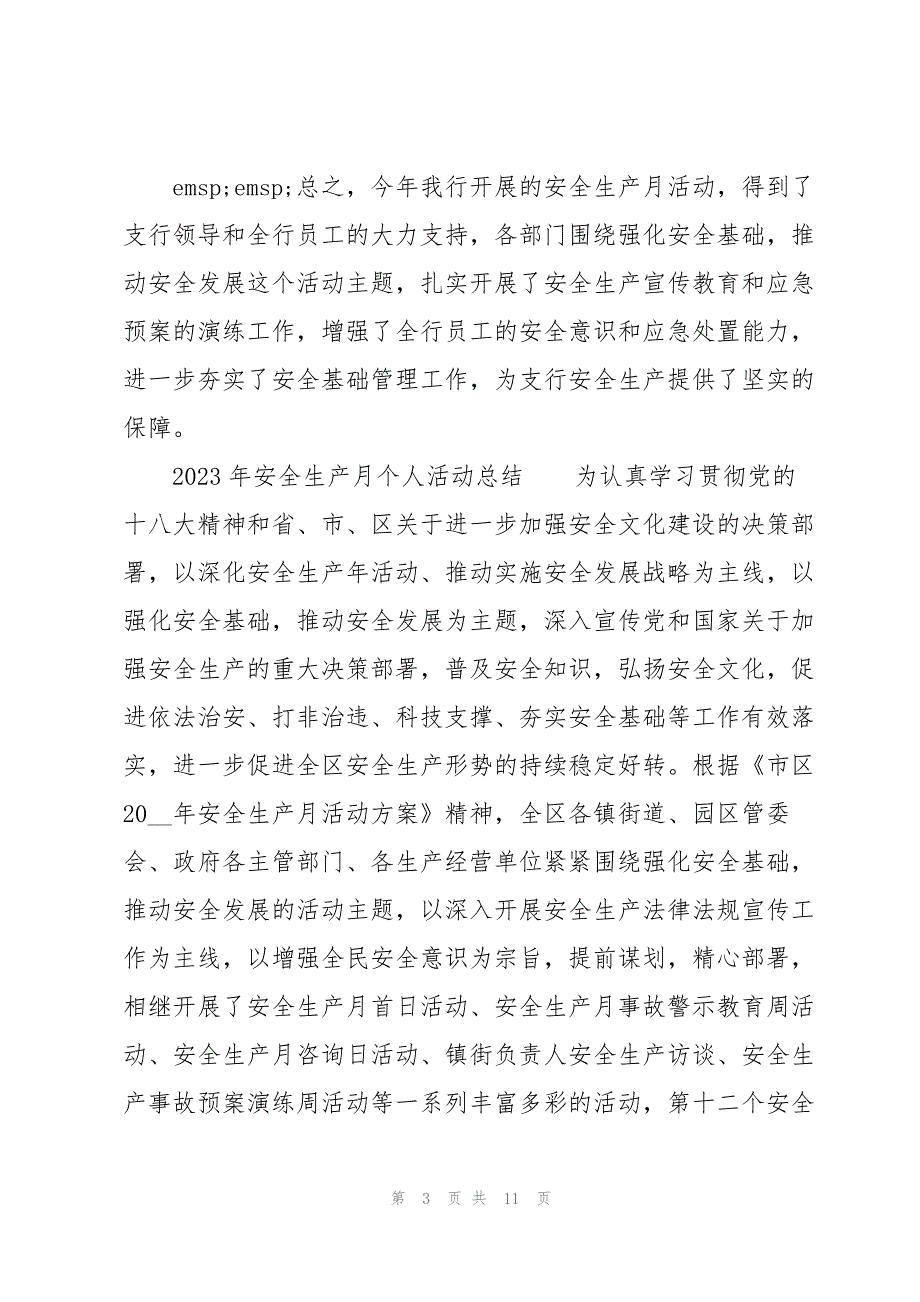 emsp;emsp;总之，今年我行开展的安全生产月活动，得到了
支行领导和全行员工的大力支持，各部门围绕强化安全基础，推
动安全发展这个活动主题，扎实开展了安全生产宣传教育和应急
预案的演练工作，增强了全行员工的安全意识和应急处置能力，
进一步夯实了安全基础管理工作，为支行安全生产提供了坚实的
保障。
2023 年安全生产月个人活动总结　　为认真学习贯彻党的
十八大精神和省、市、区关于进一步加强安全文化建设的决策部
署，以深化安全生产年活动、推动实施安全发展战略为主线，以
强化安全基础，推动安全发展为主题，深入宣传党和国家关于加
强安全生产的重大决策部署，普及安全知识，弘扬安全文化，促
进依法治安、打非治违、科技支撑、夯实安全基础等工作有效落
实，进一步促进全区安全生产形势的持续稳定好转。根据《市区
20__年安全生产月活动方案》精神，全区各镇街道、园区管委
会、政府各主管部门、各生产经营单位紧紧围绕强化安全基础，
推动安全发展的活动主题，以深入开展安全生产法律法规宣传工
作为主线，以增强全民安全意识为宗旨，提前谋划，精心部署，
相继开展了安全生产月首日活动、安全生产月事故警示教育周活
动、安全生产月咨询日活动、镇街负责人安全生产访谈、安全生
产事故预案演练周活动等一系列丰富多彩的活动，第十二个安全
第 3 页 共 11 页